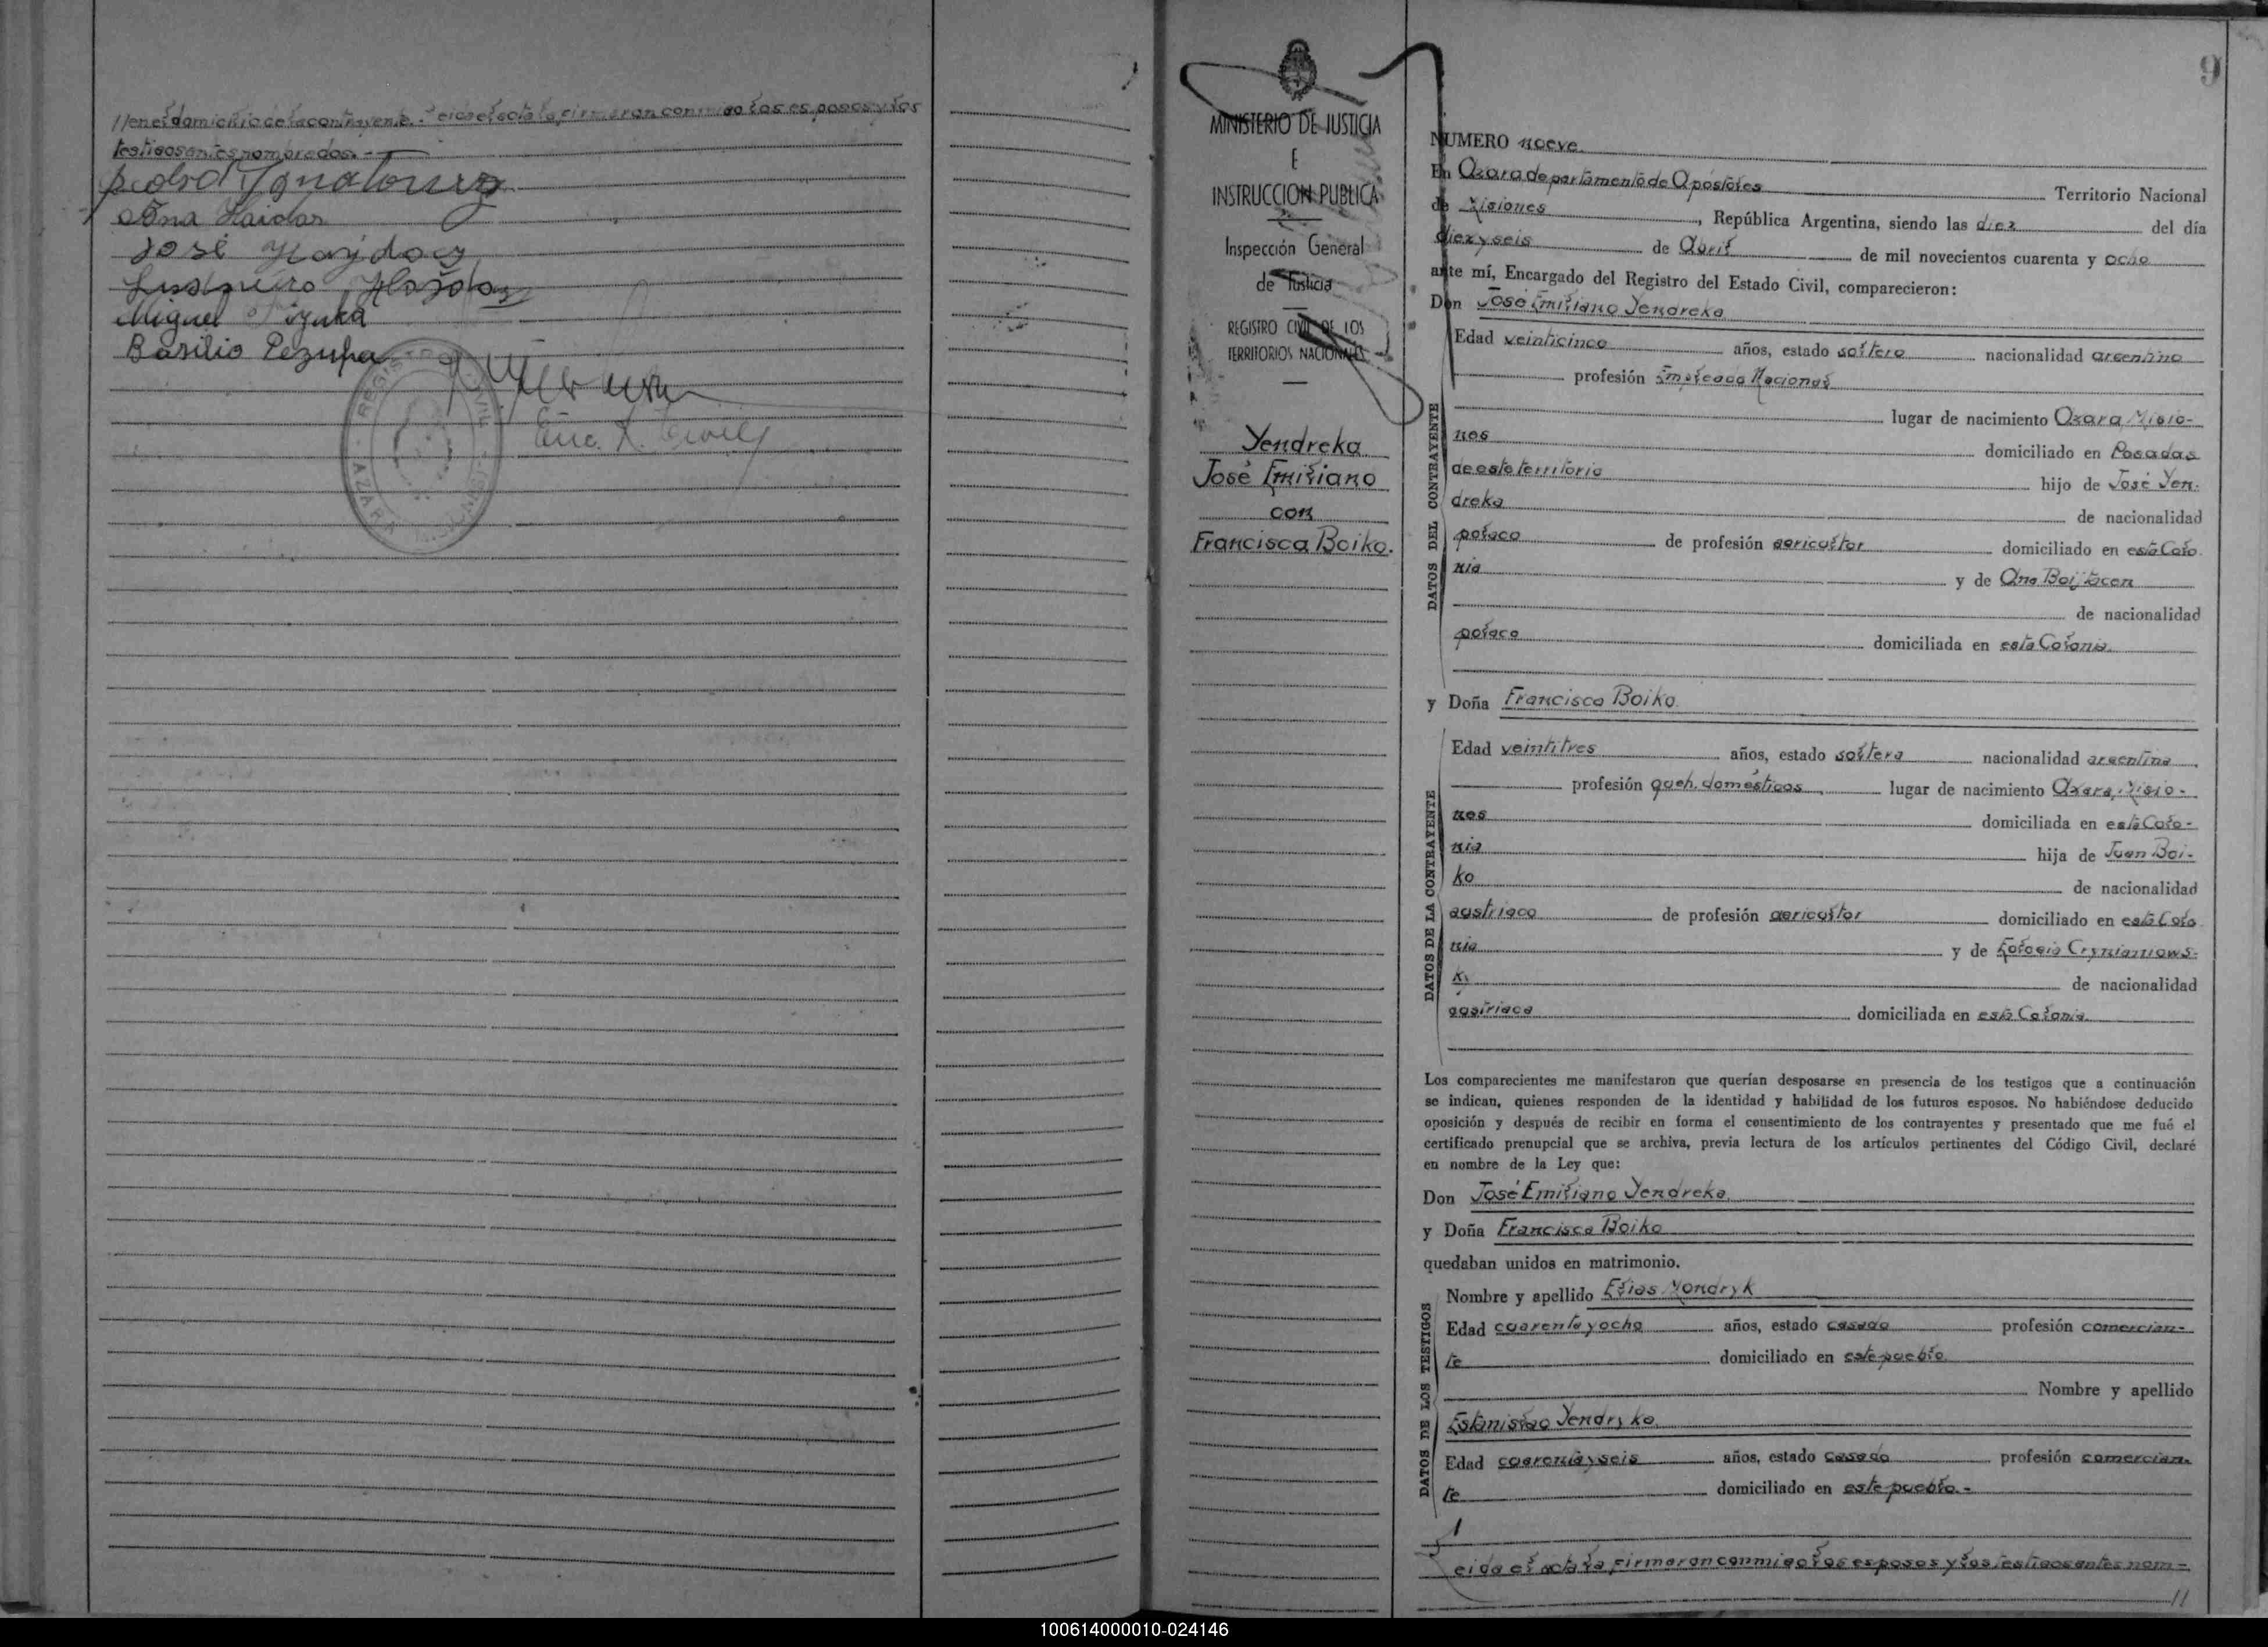 //en el domicilio de la contrayente.- Leida el acta la firmaron conmigo los esposos y los
testigos antes nombrados.-
Ana Haidar
José
Miguel
Basilio
REGISTRO CIVIL
AZARA
9
MINISTERIO DE JUSTICIA
E
INSTRUCCION PUBLICA
Inspección General
de Justicia
REGISTRO CIVIL DE LOS
TERRITORIOS NACIONALES
Yendreka
José Emiliano
con
Francisca Boiko.
NUMERO nueve
En Azara departamento de Apóstoles Territorio Nacional
de Misiones, República Argentina, siendo las diez del día
diez y seis de Abril de mil novecientos cuarenta y ocho
ante mí, Encargado del Registro del Estado Civil, comparecieron:
Don José Emiliano Yendreka
DATOS DEL CONTRAYENTE
Edad veinticinco años, estado soltero nacionalidad argentino
profesión Empleado Nacional
lugar de nacimiento Azara Misio-
nes domiciliado en Posadas
de este territorio hijo de José Yen-
dreka de nacionalidad
polaco de profesión agricultor domiciliado en esta Colo-
nia y de Ana
de nacionalidad
polaca domiciliada en esta Colonia.
y Doña Francisca Boiko
DATOS DE LA CONTRAYENTE
Edad veintitres años, estado soltera nacionalidad argentina
profesión queh. domésticos lugar de nacimiento Azara, Misio-
nes domiciliada en esta Colo-
nia hija de Juan Boi-
ko de nacionalidad
austriaco de profesión agricultor domiciliado en esta Colo-
nia y de
de nacionalidad
austriaca domiciliada en esta Colonia.
Los comparecientes me manifestaron que querían desposarse en presencia de los testigos que a continuación
se indican, quienes responden de la identidad y habilidad de los futuros esposos. No habiéndose deducido
oposición y después de recibir en forma el consentimiento de los contrayentes y presentado que me fué el
certificado prenupcial que se archiva, previa lectura de los artículos pertinentes del Código Civil, declaré
en nombre de la Ley que:
Don José Emiliano Yendreka
y Doña Francisca Boiko
quedaban unidos en matrimonio.
DATOS DE LOS TESTIGOS
Nombre y apellido Elias Mondryk
Edad cuarenta y ocho años, estado casado profesión comercian-
te domiciliado en este pueblo
Nombre y apellido
Estanislao Yendryka
Edad cuarenta y seis años, estado casado profesión comercian-
te domiciliado en este pueblo.-
Leida el acta la firmaron conmigo los esposos y los testigos antes nom-
//
100614000010-024146